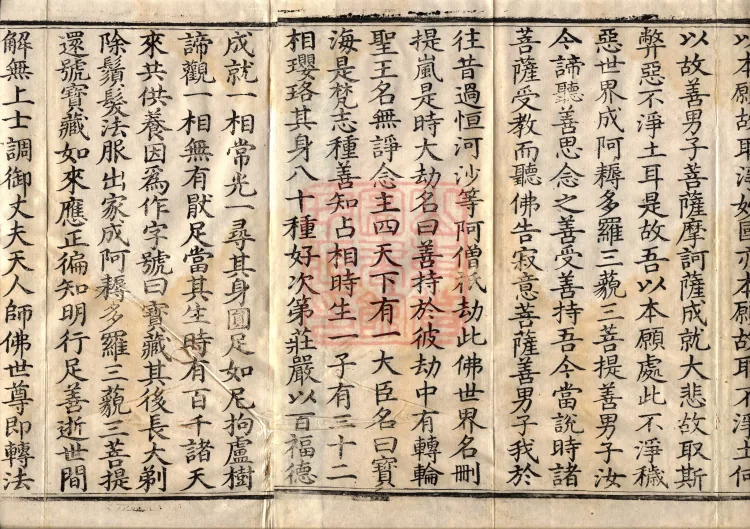 以本願故取淨妙國亦本願故取不淨土何
以故善男子菩薩摩訶薩成就大悲故取斯
弊惡不淨土耳是故吾以本願處此不淨穢
惡世界成阿耨多羅三藐三菩提善男子汝
今諦聽善思念之善受善持吾今當說時諸
菩薩受教而聽佛告寂意菩薩善男子我於
往昔過恒河沙等阿僧祇劫此佛世界名刪
提嵐是時大劫名曰善持於彼劫中有轉輪
聖王名無諍念主四天下有一大臣名曰寶
海是梵志種善知占相時生一子有三十二
相瓔珞其身八十種好次第莊嚴以百福德
成就一相常光一尋其身圓足如尼拘盧樹
諦觀一相無有猒足當其生時有百千諸天
來共供養因爲作字號曰寶藏其後長大剃
除鬚髮法服出家成阿耨多羅三藐三菩提
還號寶藏如來應正徧知明行足善逝世間
解無上士調御丈夫天人師佛世尊即轉法